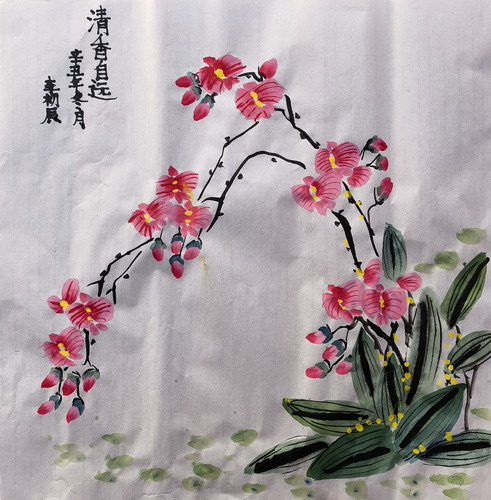 清香自远
辛丑年冬月
李初